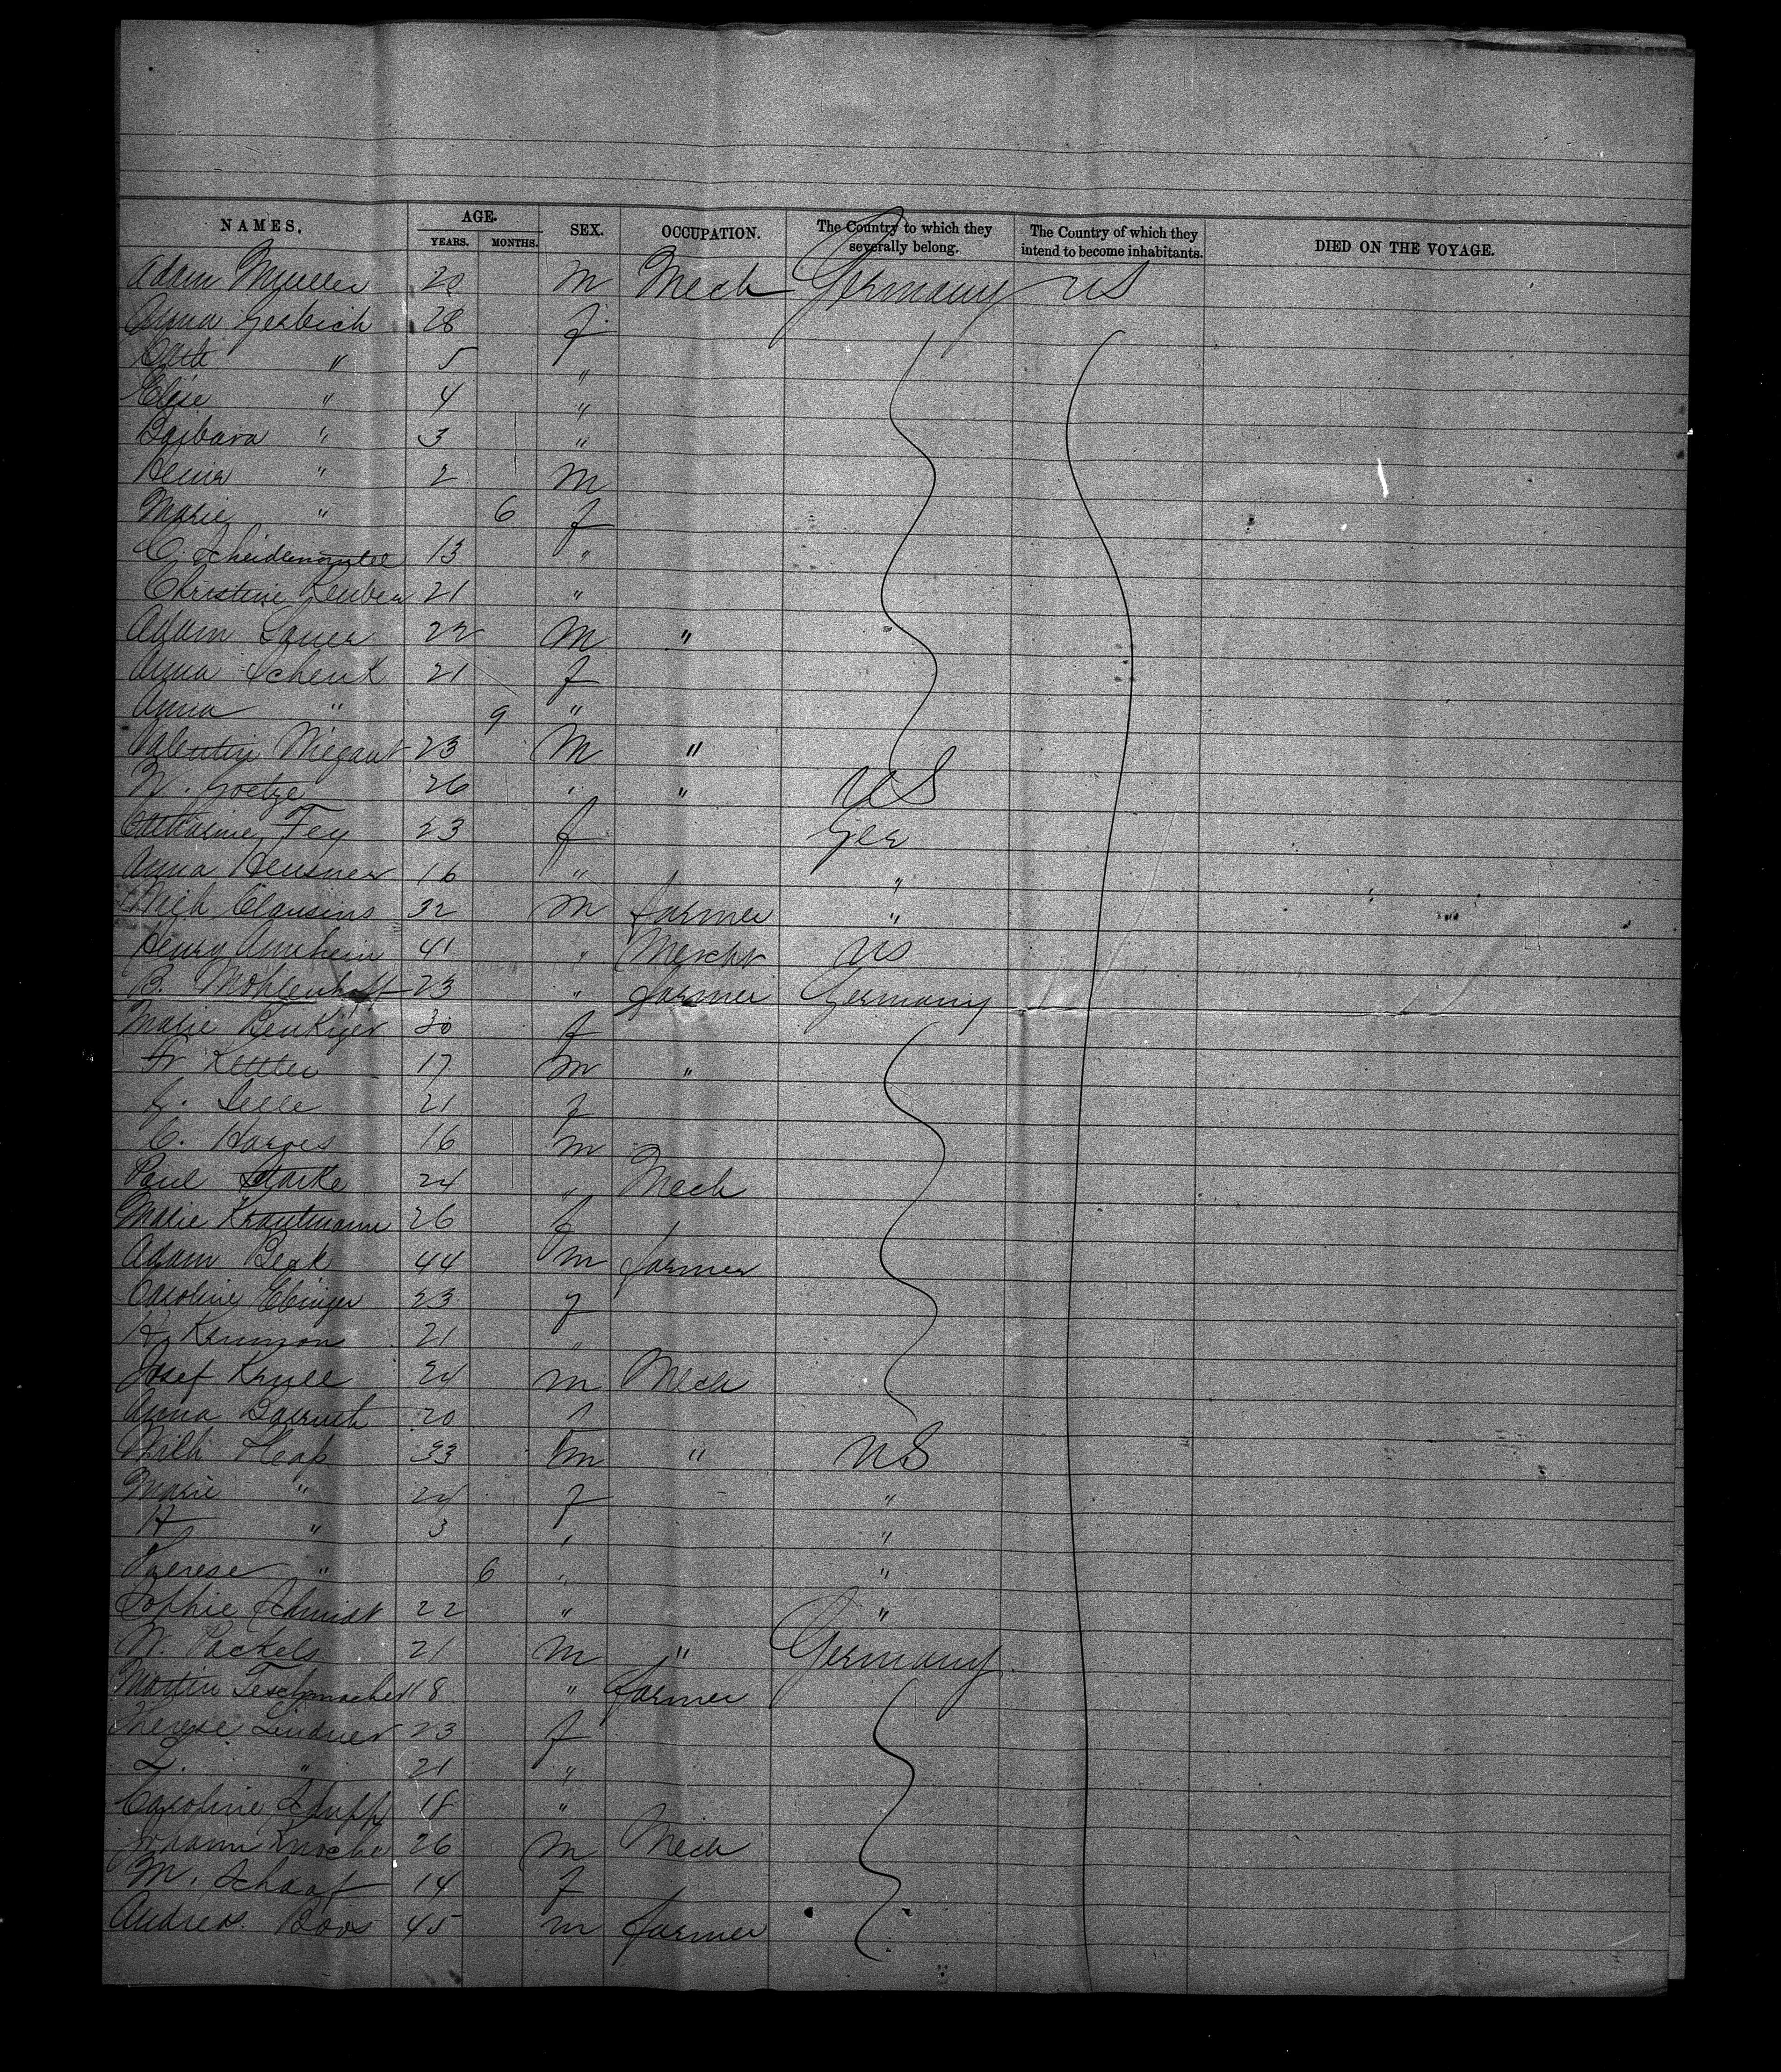 NAMES. AGE. YEARS. MONTHS. SEX. OCCUPATION. The Country to which they severally belong. The Country of which they intend to become inhabitants. DIED ON THE VOYAGE.
Adam Mueller 20 M Mech Germany US
Anna Gerbich 28 f
Cath " 5 "
Elise " 4 "
Barbara " 3 "
Heinr " 2 M
Marie " 6 f
C. Scheidemantel 13 "
Christine 21 "
Adam Sauer 22 M "
Anna Schenk 21 f
Anna " 9 "
Valentin Wiegant 23 M "
W. Goetze 26 " " US
Catharine Fey 23 f Ger
Anna Heusner 16 " "
Mich Clausins 32 M farmer "
Henry Arnheim 41 " Merchr US
B. Mohlenhoff 23 " farmer Germany
Marie Benkiger 30 f
Fr Kettler 17 m "
21 f
C. Harves 16 m
Paul Starke 24 " Mech
Marie Krautmann 26 f
Adam Beck 44 m farmer
Caroline Ebinger 23 f
21 "
Josef Krull 24 m Mech
Anna 20 f
Wilh Heap 33 m " US
Marie " 24 f "
H " 3 " "
Therese " 6 " "
Sophie Schmidt 22 " "
W. Packels 21 m " Germany
Martin Teschmacher 18 " farmer
Therese Lindner 23 f
L. " 21 "
Caroline 18 "
Johann Knoche 26 m Mech
M. Schaaf 14 f
Andreas Boos 45 m farmer